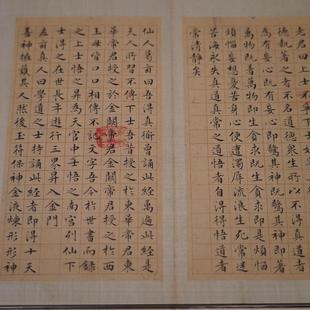 老君曰上士無爭下士好爭上德不德下
德執著之者不名道德眾生所以不得真道者
為有妄心既有妄心即驚其神既驚其神即著
萬物既著萬物即生貪求既生貪求即是煩惱
煩惱妄想憂苦身心便遭濁辱流浪生死常沉
苦海永失真道真常之道悟者自得得悟道者
常清靜矣
仙人葛玄曰吾得真道曾誦此經萬遍此經是
天人所習不傳下士吾昔授之於東華帝君東
華帝君授之於金闕帝君金闕帝君授之於西
王母皆口口相傳不記文字吾今於世書而錄
之上士悟之昇為天官中士悟之南宮列仙下
士得之在世長年遊行三界昇入金門
左玄真人曰學道之士持誦此經者即得十天
善神擁護其人然後玉符保神金液煉形形神